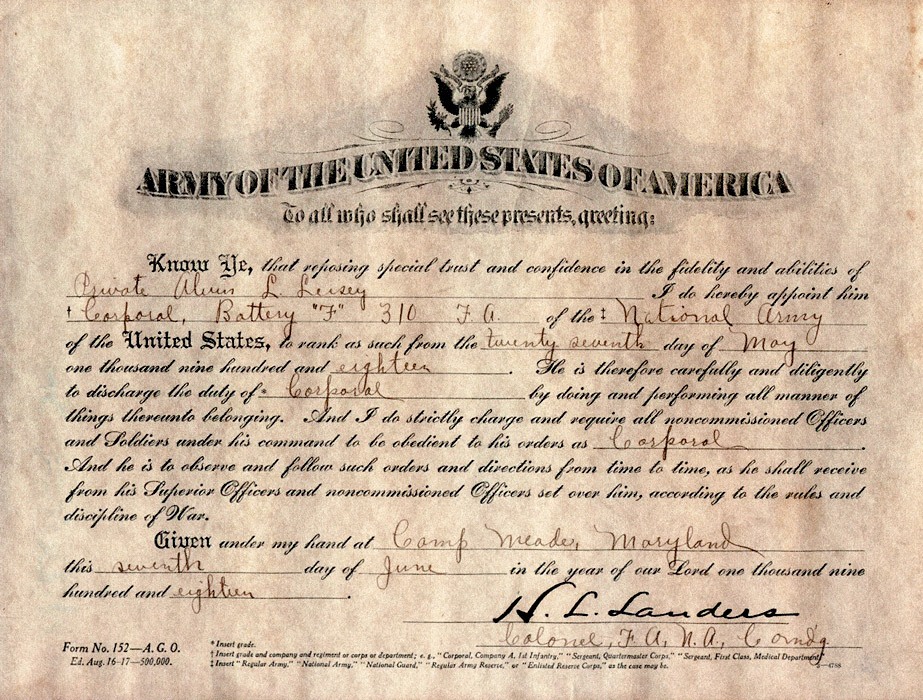 ARMY OF THE UNITED STATES OF AMERICA
To all who shall see these presents, greeting:
Know Ye, that reposing special trust and confidence in the fidelity and abilities of
Private Alvin L. Lersey I do hereby appoint him
† Corporal, Battery "F" 310 F.A. of the ‡ National Army
of the United States, to rank as such from the twenty seventh day of May
one thousand nine hundred and eighteen. He is therefore carefully and diligently
to discharge the duty of * Corporal by doing and performing all manner of
things thereunto belonging. And I do strictly charge and require all noncommissioned Officers
and Soldiers under his command to be obedient to his orders as Corporal.
And he is to observe and follow such orders and directions from time to time, as he shall receive
from his Superior Officers and noncommissioned Officers set over him, according to the rules and
discipline of War.
Given under my hand at Camp Meade, Maryland
this seventh day of June in the year of our Lord one thousand nine
hundred and eighteen.
H. L. Landers
Colonel, F.A. N.A., Comdg
Form No. 152—A. G. O.
Ed. Aug. 16-17—500,000.
* Insert grade.
† Insert grade and company and regiment or corps or department; e. g., "Corporal, Company A, 1st Infantry," "Sergeant, Quartermaster Corps," "Sergeant, First Class, Medical Department."
‡ Insert "Regular Army," "National Army," "National Guard," "Regular Army Reserve," or "Enlisted Reserve Corps," as the case may be.
3—4788